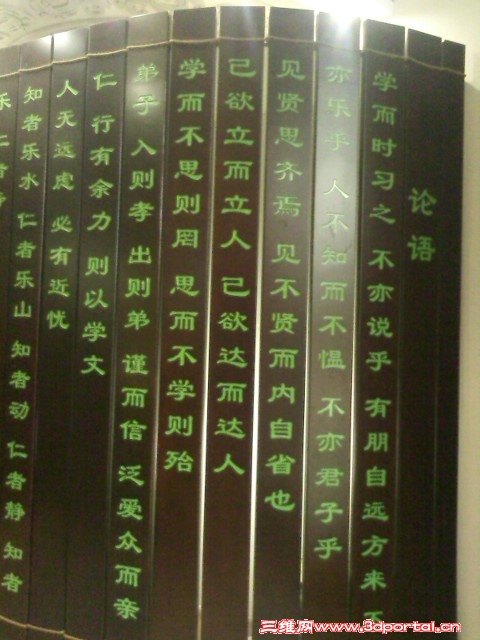 论语
学而时习之 不亦说乎 有朋自远方来 不
亦乐乎 人不知而不愠 不亦君子乎
见贤思齐焉 见不贤而内自省也
己欲立而立人 己欲达而达人
学而不思则罔 思而不学则殆
弟子 入则孝 出则弟 谨而信 泛爱众而亲
仁 行有余力 则以学文
人无远虑 必有近忧
知者乐水 仁者乐山 知者动 仁者静 知者
乐 仁者
三维网www.3dportal.cn